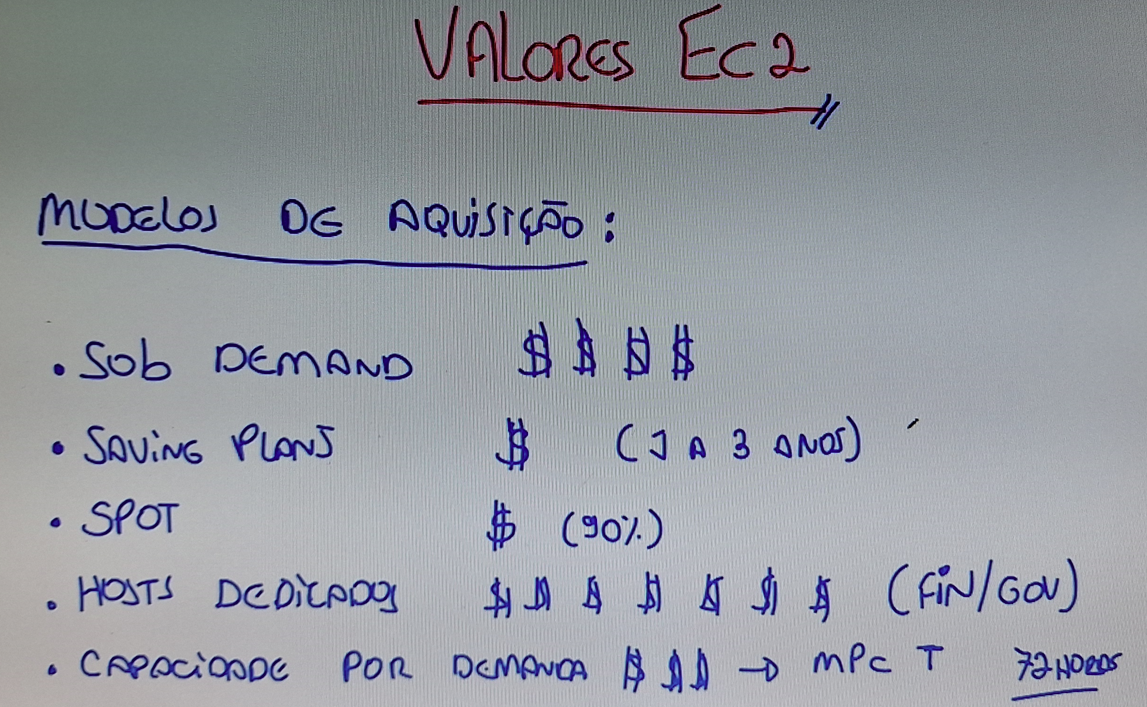 VALORES EC2
MODELOS DE AQUISIÇÃO:
• SOB DEMAND $ $ $ $
• SAVING PLANS $ (1 A 3 ANOS)
• SPOT $ (90%)
• HOSTS DEDICADOS $ $ $ $ $ $ $ (FIN/GOV)
• CAPACIDADE POR DEMANDA $ $ $ → MPC T 72 HORAS